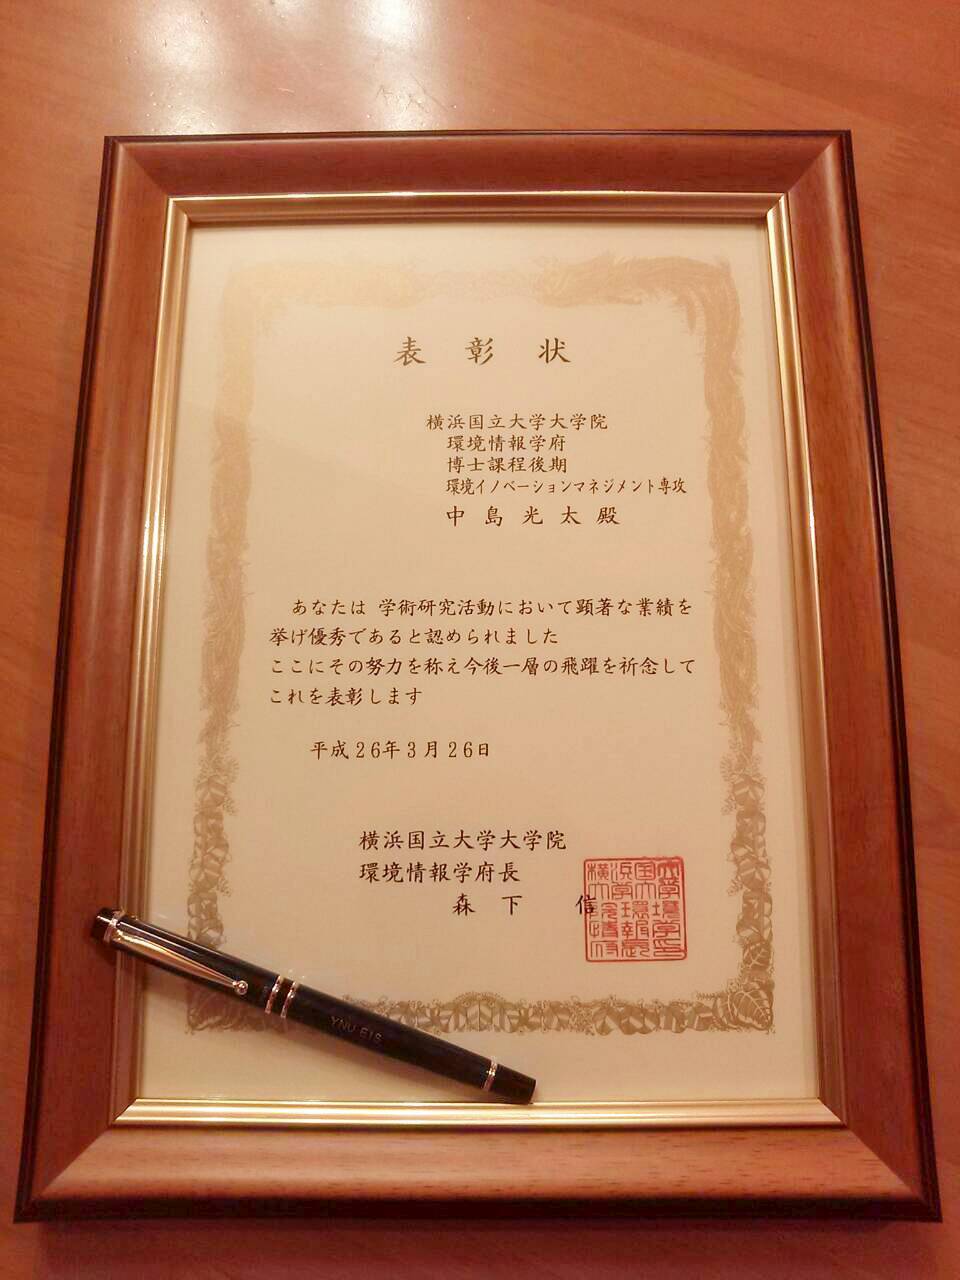 表彰状
横浜国立大学大学院
環境情報学府
博士課程後期
環境イノベーションマネジメント専攻
中島光太殿
あなたは 学術研究活動において顕著な業績を
挙げ優秀であると認められました
ここにその努力を称え今後一層の飛躍を祈念して
これを表彰します
平成26年3月26日
横浜国立大学大学院
環境情報学府長
森下 信
YNU EIS